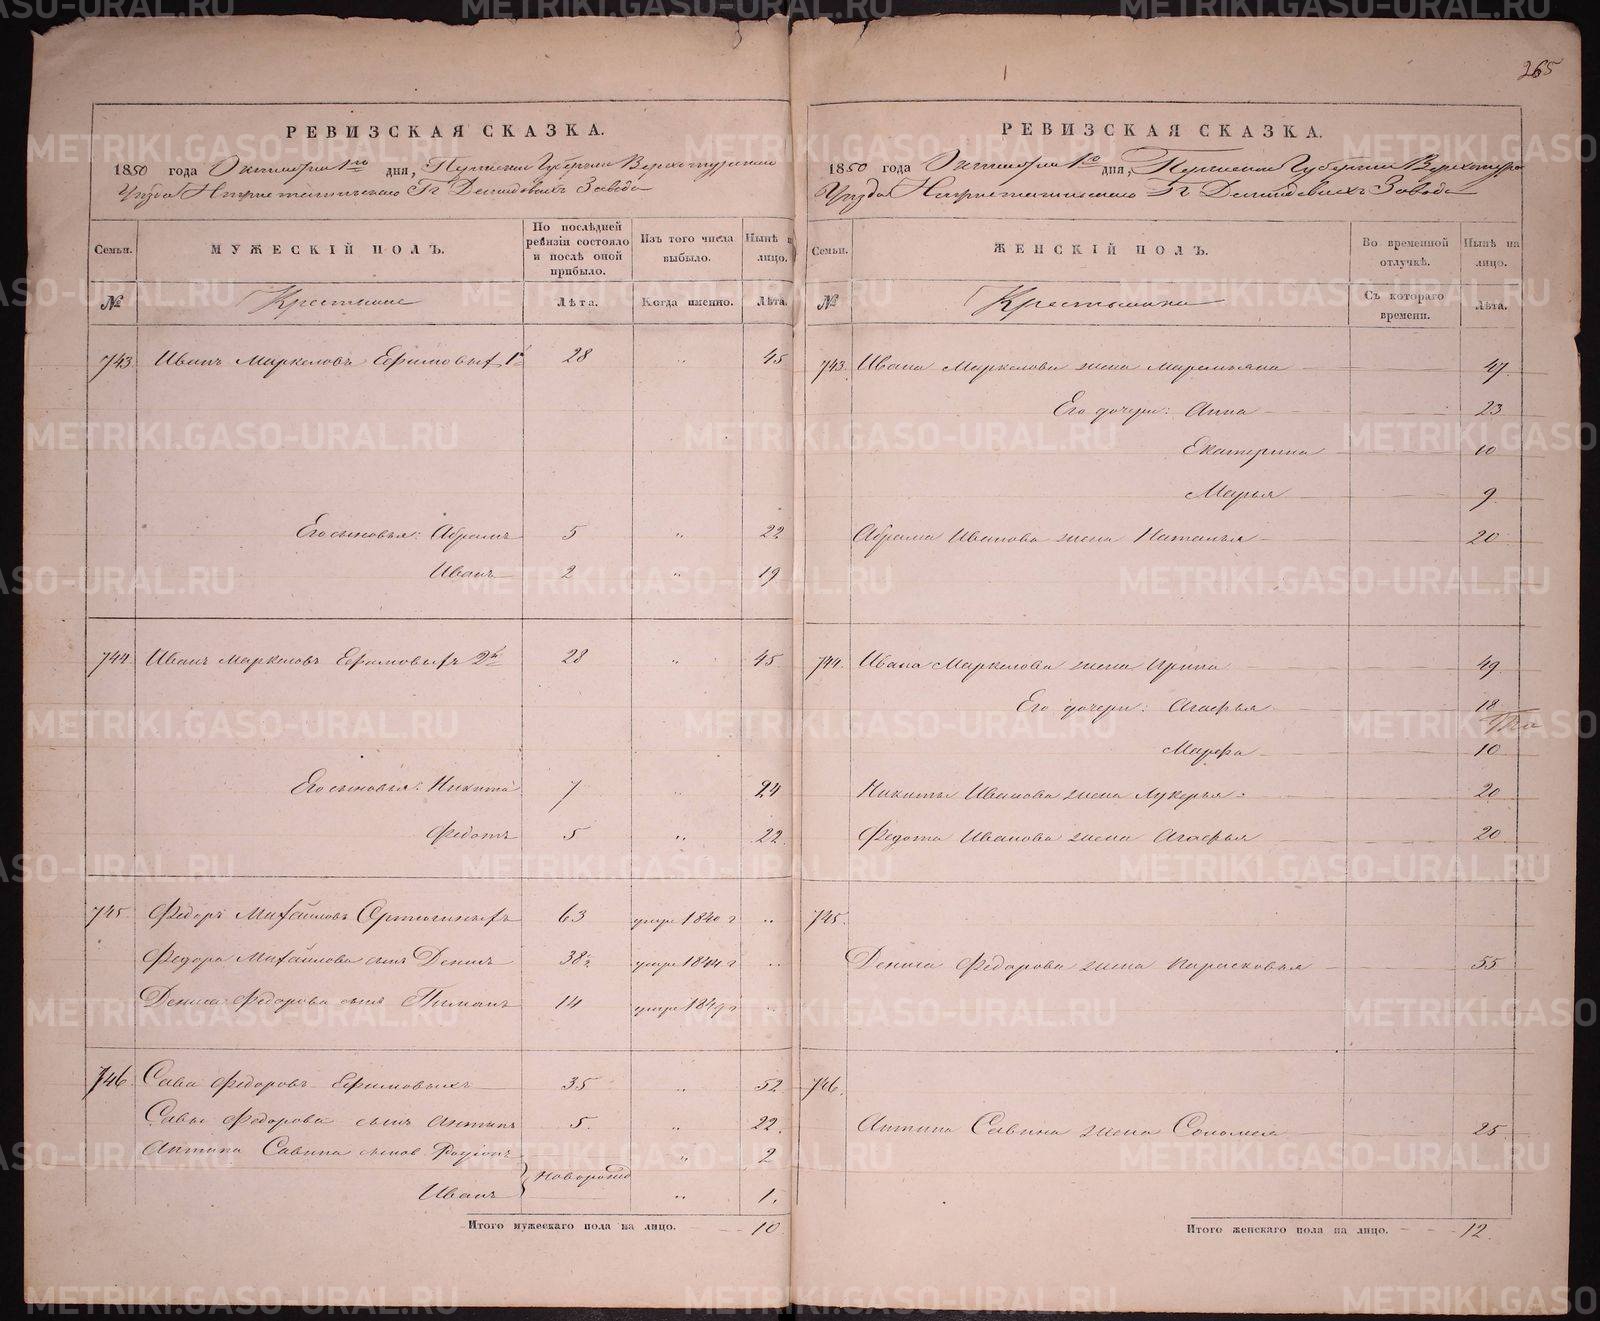 265
РЕВИЗСКАЯ СКАЗКА.
1850 года Октября 1го дня, Пермской Губернии Верхотурскаго
Уѣзда Г. Демидовыхъ Завода
Семьи.
МУЖЕСКІЙ ПОЛЪ.
По послѣдней ревизіи состояло и послѣ оной прибыло.
Изъ того числа выбыло.
Нынѣ на лицо.
№
Крестьяне
Лѣта.
Когда именно.
Лѣта.
743 Иванъ Маркеловъ Ефимовыхъ 1й 28 " 45
Его сыновья: Абрамъ 5 " 22
Иванъ 2 " 19
744 Иванъ Маркеловъ Ефимовыхъ 2й 28 " 45
Его сыновья: Никита 7 " 24
Федотъ 5 " 22
745 Федоръ Михайловъ 63 умре 1840 г "
Федора Михайлова сынъ Денисъ 38 умре 1844 г "
Дениса Федорова сынъ Пиманъ 14 умре 1849 г "
746 Сава Федоровъ Ефимовыхъ 35 " 52
Савы Федорова сынъ Антипъ 5 " 22
Антипа Савина сынов. Родіонъ " 2
Новорожд
Иванъ " 1.
Итого мужескаго пола на лицо. 10
РЕВИЗСКАЯ СКАЗКА.
1850 года Октября 1го дня, Пермской Губернии Верхотурс
Уѣзда Г. Демидовыхъ Завода
Семьи.
ЖЕНСКІЙ ПОЛЪ.
Во временной отлучкѣ.
Нынѣ на лицо.
№
Крестьянки
Съ котораго времени.
Лѣта.
743 Ивана Маркелова жена Маремьяна 47
Его дочери: Анна 23
Екатерина 10
Марья 9
Абрама Иванова жена Наталья 20
744. Ивана Маркелова жена Ирина 49
Его дочери: Агафья 18
Марфа 10
Никиты Иванова жена Лукерья 20
Федота Иванова жена Агафья 20
745.
Дениса Федорова жена Парасковья 55
746.
Антипа Савина жена Соломея 25
Итого женскаго пола на лицо. 12.
METRIKI.GASO-URAL.RU